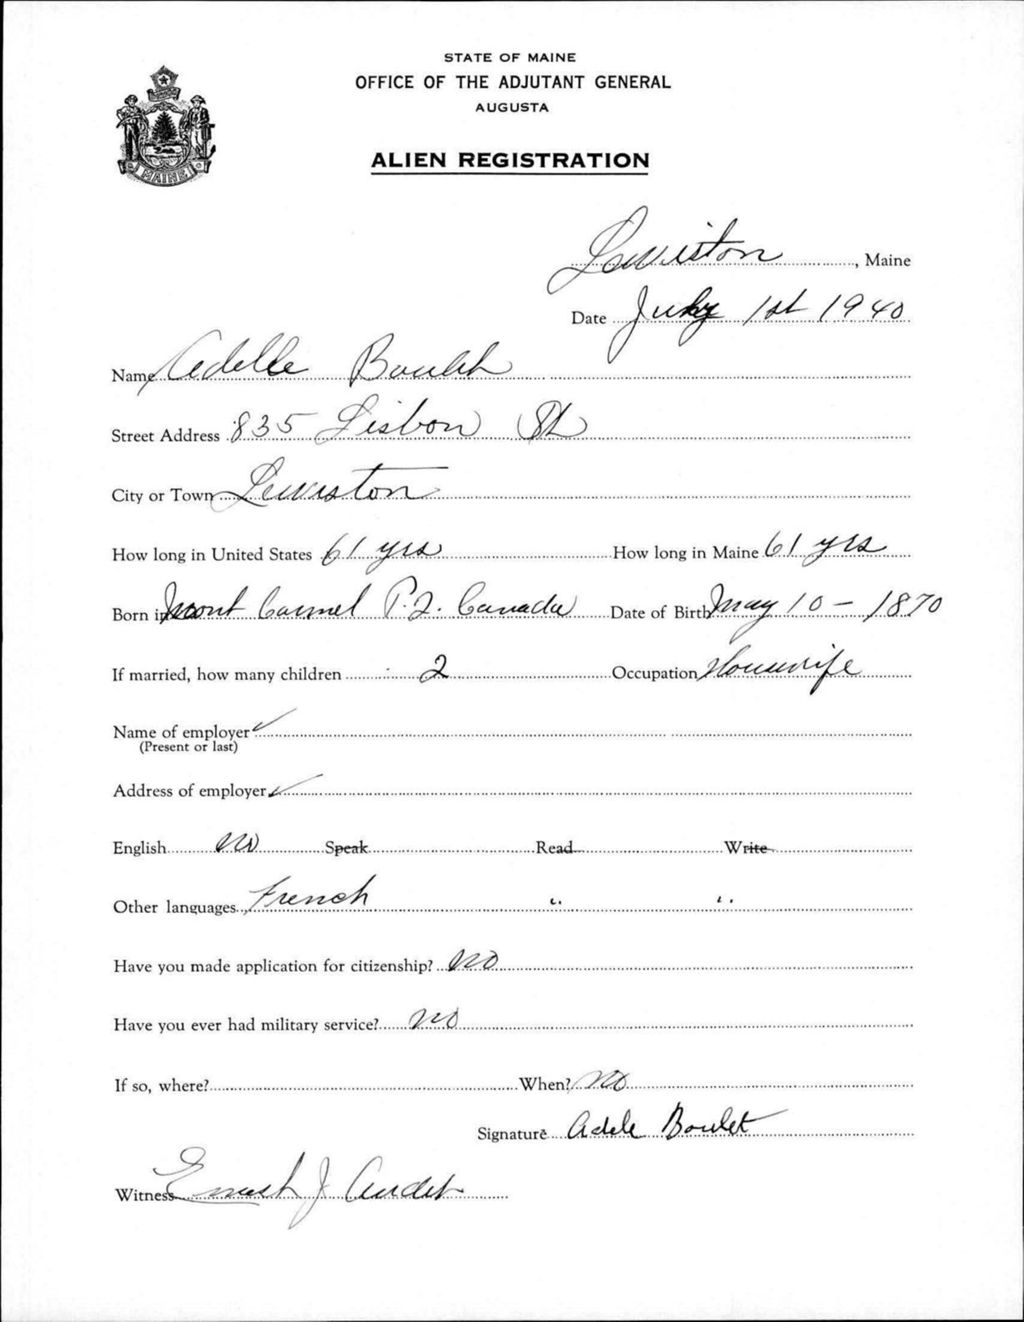 STATE OF MAINE
OFFICE OF THE ADJUTANT GENERAL
AUGUSTA
ALIEN REGISTRATION
MAINE
Lewiston, Maine
Date July 1st 1940
Name Adelle Boulet
Street Address 835 Lisbon St
City or Town Lewiston
How long in United States 61 yrs How long in Maine 61 yrs
Born in Mont Carmel P.Q. Canada Date of Birth May 10 - 1870
If married, how many children 2 Occupation Housewife
Name of employer ✓
(Present or last)
Address of employer ✓
English No Speak Read Write
Other languages French " "
Have you made application for citizenship? No
Have you ever had military service? No
If so, where? When? No
Signature Adele Boulet
Witness Ernest J Audet